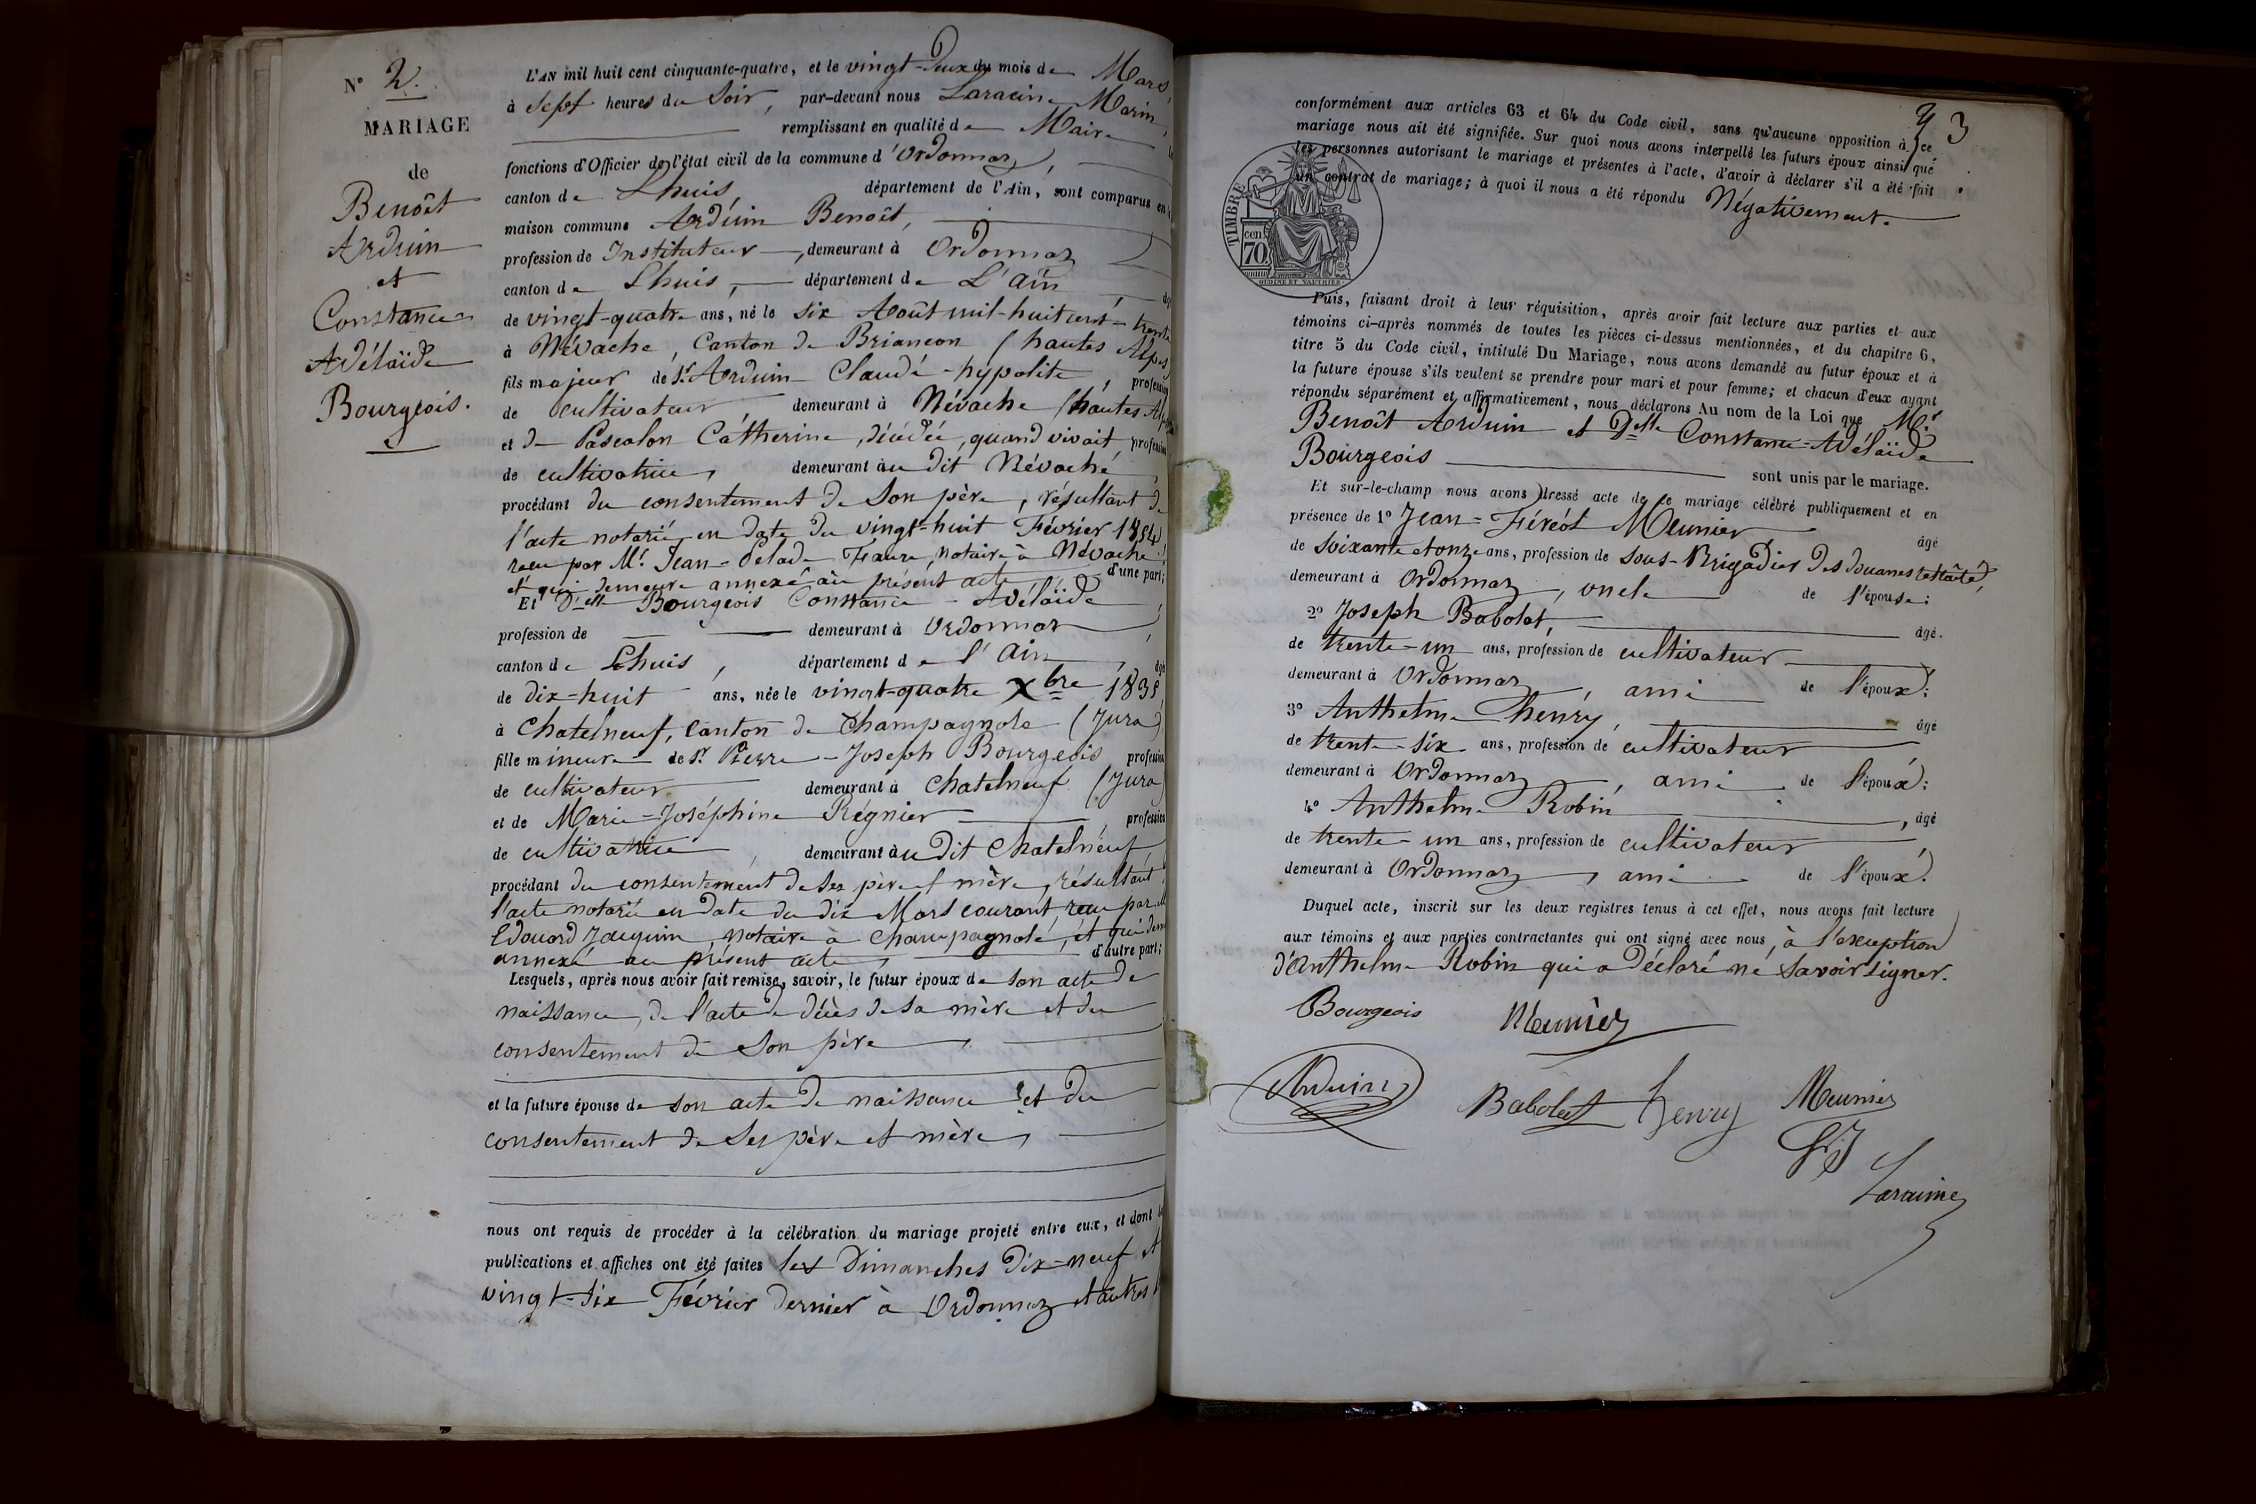 N° 2.
MARIAGE
de
Benoît
Arduin
et
Constance
Adélaïde
Bourgeois.
L'AN mil huit cent cinquante-quatre, et le vingt-deux du mois de Mars,
à Sept heures du Soir, par-devant nous Laracine Marin,
remplissant en qualité de Maire
fonctions d'Officier de l'état civil de la commune d'Ordonnaz,
canton de Lhuis, département de l'Ain, sont comparus en
maison commune Arduin Benoît,
profession de Instituteur, demeurant à Ordonnaz
canton de Lhuis, département de L'ain
de vingt-quatre ans, né le six Août mil-huit cent-trente
à Névache, Canton de Briancon (hautes Alpes
fils majeur de Sr. Arduin Claude-hypolite, profession
de cultivateur demeurant à Névache (hautes Alpes
et de Pascalon Catherine, décédée, quand vivait profession
de cultivatrice, demeurant au dit Névache
procédant du consentement de Son père, résultant de
l'acte notarié en date du vingt-huit Février 1854,
reçu par Mr. Jean- Faure, notaire à Névache
et qui demeure annexé au présent acte d'une part;
Et Delle Bourgeois Constance-Adélaïde
profession de demeurant à Ordonnaz
canton de Lhuis, département de l'Ain, âgé
de dix-huit ans, née le vingt-quatre Xbre 1835
à Chatelneuf, canton de Champagnole (Jura)
fille mineure de Sr. Pierre-Joseph Bourgeois profession
de cultivateur demeurant à Chatelneuf (Jura)
et de Marie-Joséphine Régnier, profession
de cultivatrice, demeurant au dit Chatelneuf
procédant du consentement de Ses père et mère, résultant
l'acte notarié en date du dix Mars courant, reçu par
Edouard Jacquin, notaire à Champagnole, et qui
annexé au présent acte, d'autre part;
Lesquels, après nous avoir fait remise, savoir, le futur époux de son acte de
naissance, de l'acte de décès de sa mère et du
consentement de Son père,
et la future épouse de son acte de naissance et du
consentement de Ses père et mère,
nous ont requis de procéder à la célébration du mariage projeté entre eux, et dont
publications et affiches ont été faites les Dimanches Dix-neuf et
vingt-six Février dernier à Ordonnaz et autres
3
conformément aux articles 63 et 64 du Code civil, sans qu'aucune opposition à ce
mariage nous ait été signifiée. Sur quoi nous avons interpellé les futurs époux ainsi que
les personnes autorisant le mariage et présentes à l'acte, d'avoir à déclarer s'il a été fait
un contrat de mariage; à quoi il nous a été répondu Négativement.
TIMBRE
cen
70.
OUDINÉ ET VAUTHIER
Puis, faisant droit à leur réquisition, après avoir fait lecture aux parties et aux
témoins ci-après nommés de toutes les pièces ci-dessus mentionnées, et du chapitre 6,
titre 5 du Code civil, intitulé Du Mariage, nous avons demandé au futur époux et à
la future épouse s'ils veulent se prendre pour mari et pour femme; et chacun d'eux ayant
répondu séparément et affirmativement, nous déclarons Au nom de la Loi que Mr.
Benoît Arduin et Delle Constance-Adélaïde
Bourgeois sont unis par le mariage.
Et sur-le-champ nous avons dressé acte de ce mariage célébré publiquement et en
présence de 1° Jean-Féréol Meunier âgé
de soixante et onze ans, profession de sous-Brigadier des douanes retraité,
demeurant à Ordonnaz, oncle de l'épouse;
2° Joseph Babolat, âgé
de trente-un ans, profession de cultivateur
demeurant à Ordonnaz, ami de l'époux;
3° Anthelme henry, âgé
de trente-six ans, profession de cultivateur
demeurant à Ordonnaz, ami de l'époux;
4° Anthelme Robin, âgé
de trente-un ans, profession de cultivateur
demeurant à Ordonnaz, ami de l'époux.
Duquel acte, inscrit sur les deux registres tenus à cet effet, nous avons fait lecture
aux témoins et aux parties contractantes qui ont signé avec nous, à l'exception
d'Anthelme Robin qui a déclaré ne savoir signer.
Bourgeois Meunier
Arduin Babolat henry Meunier
Laracine